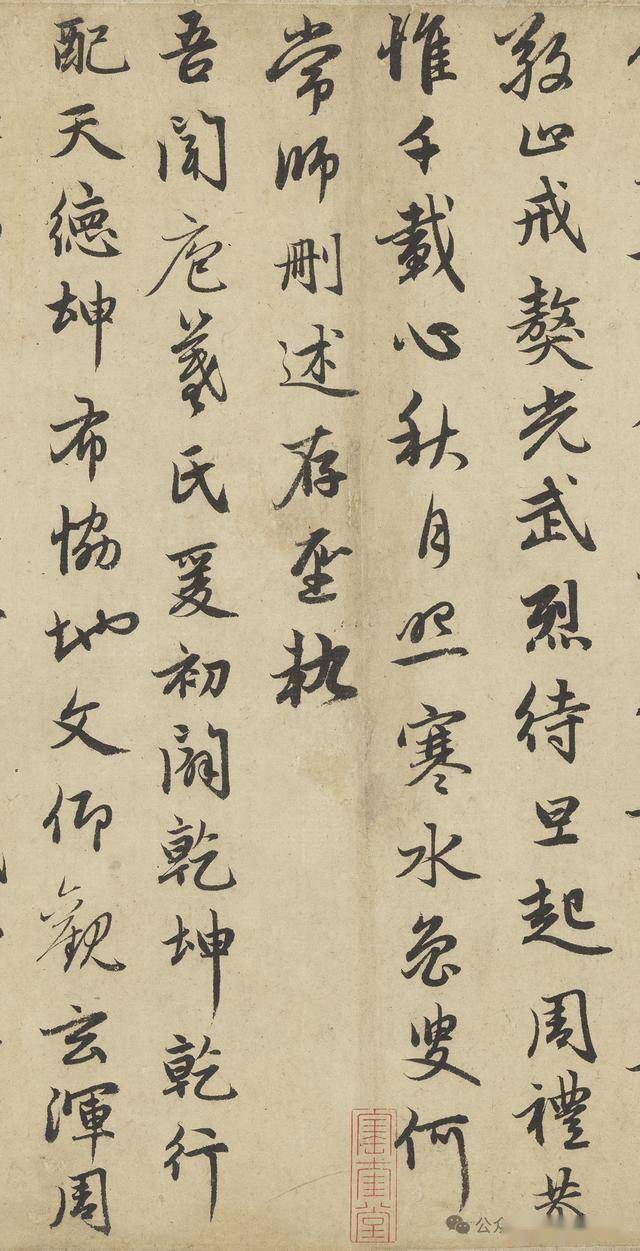 敬止戒獒光武烈待旦起周禮恭
惟千載心秋月照寒水魯叟何
常師刪述存聖軌
吾聞庖羲氏爰初闢乾坤乾行
配天德坤布協地文仰觀玄渾周
公众